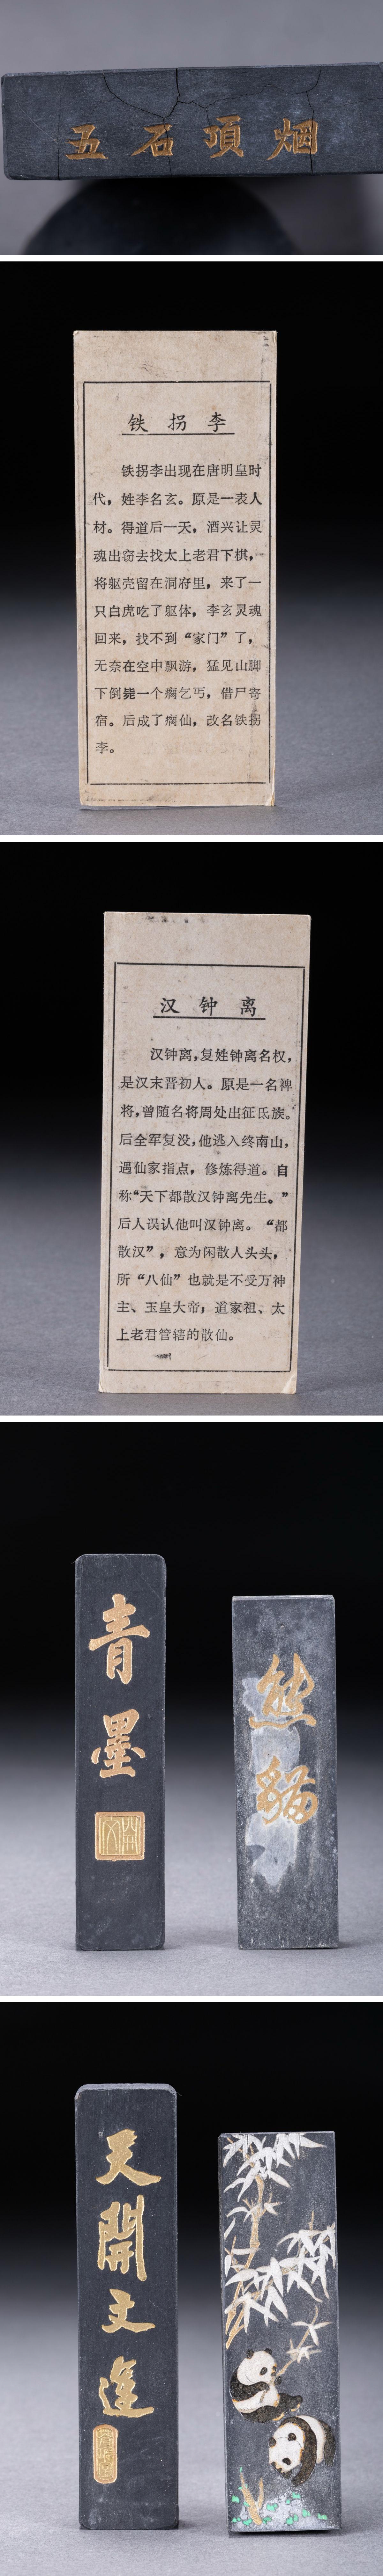 五石頂烟
铁拐李
铁拐李出现在唐明皇时
代，姓李名玄。原是一表人
材。得道后一天，酒兴让灵
魂出窃去找太上老君下棋，
将躯壳留在洞府里，来了一
只白虎吃了躯体，李玄灵魂
回来，找不到“家门”了，
无奈在空中飘游，猛见山脚
下倒毙一个病乞丐，借尸寄
宿。后成了病仙，改名铁拐
李。
汉钟离
汉钟离，复姓钟离名权，
是汉末晋初人。原是一名裨
将，曾随名将周处出征氐族。
后全军复没，他逃入终南山，
遇仙家指点，修炼得道。自
称“天下都散汉钟离先生。”
后人误认他叫汉钟离。“都
散汉”，意为闲散人头头，
所“八仙”也就是不受万神
主、玉皇大帝，道家祖、太
上老君管辖的散仙。
青墨
熊貓
天開文運